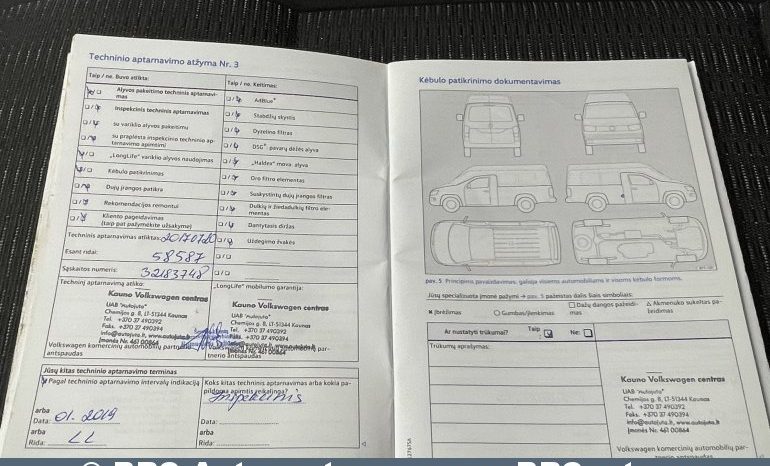 Techninio aptarnavimo atžyma Nr. 3
Taip / ne. Buvo atlikta:
Taip / ne. Keitimas:
Alyvos pakeitimo techninis aptarnavi-
mas
Inspekcinis techninis aptarnavimas
su variklio alyvos pakeitimu
su praplėsta inspekcinio techninio ap-
tarnavimo apimtimi
„LongLife“ variklio alyvos naudojimas
Kėbulo patikrinimas
Dujų įrangos patikra
Rekomendacijos remontui
Kliento pageidavimas
(taip pat pažymėkite užsakyme)
AdBlue®
Stabdžių skystis
Dyzelino filtras
DSG® pavarų dėžės alyva
„Haldex“ mova alyva
Oro filtro elementas
Suskystintų dujų įrangos filtras
Dulkių ir žiedadulkių filtro ele-
mentas
Dantytasis diržas
Uždegimo žvakės
Techninis aptarnavimas atliktas: 20170720
Esant ridai: 58587
Sąskaitos numeris: 32183748
Techninį aptarnavimą atliko:
Kauno Volkswagen centras
UAB "Autojuta"
Chemijos g. 8, LT-51344 Kaunas
Tel. +370 37 490392
Faks. +370 37 490393
info@autojuta.lt, www.autojuta.lt
Įmonės Nr. 461 00864
Volkswagen komercinių automobilių
antspaudas
„LongLife“ mobilumo garantija:
Kauno Volkswagen centras
UAB "Autojuta"
Chemijos g. 8, LT-51344 Kaunas
Tel. +370 37 490392
Įmonės Nr. 461 00864
Volkswagen komercinių automobilių par-
tnerio antspaudas
Jūsų kitas techninio aptarnavimo terminas
Pagal techninio aptarnavimo intervalų indikaciją
arba
Data: 01. 2019
arba
Rida: LL
Koks kitas techninis aptarnavimas arba kokia pa-
pildoma apimtis reikalinga?
Data:
Rida:
Kėbulo patikrinimo dokumentavimas
pav. 5 Principinis pavaizdavimas: galioja visiems automobiliams ir visoms kėbulo formoms.
Jūsų specializuota įmonė pažymi → pav. 5 pažeistas dalis šiais simboliais:
Įbrėžimas
Gumbas/įlenkimas
Dažų dangos pažeidi-
mas
Akmenuko sukeltas pa-
žeidimas
Ar nustatyti trūkumai?
Taip
Ne:
Trūkumų aprašymas:
Kauno Volkswagen centras
UAB "Autojuta"
Chemijos g. 8, LT-51344 Kaunas
Tel. +370 37 490392
Faks. +370 37 490393
info@autojuta.lt, www.autojuta.lt
Įmonės Nr. 461 00864
Volkswagen komercinių automobilių par-
tnerio antspaudas